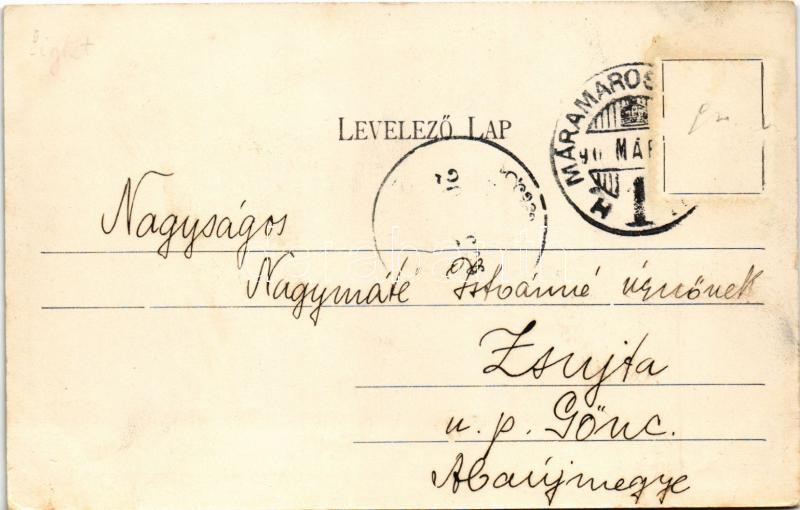 Sziget
LEVELEZŐ LAP
MÁRAMAROS
90 MÁR
H 1
Nagyságos
Nagymáté Istvánné úrnőnek
Zsujta
u. p. Gönc.
Abaújmegye